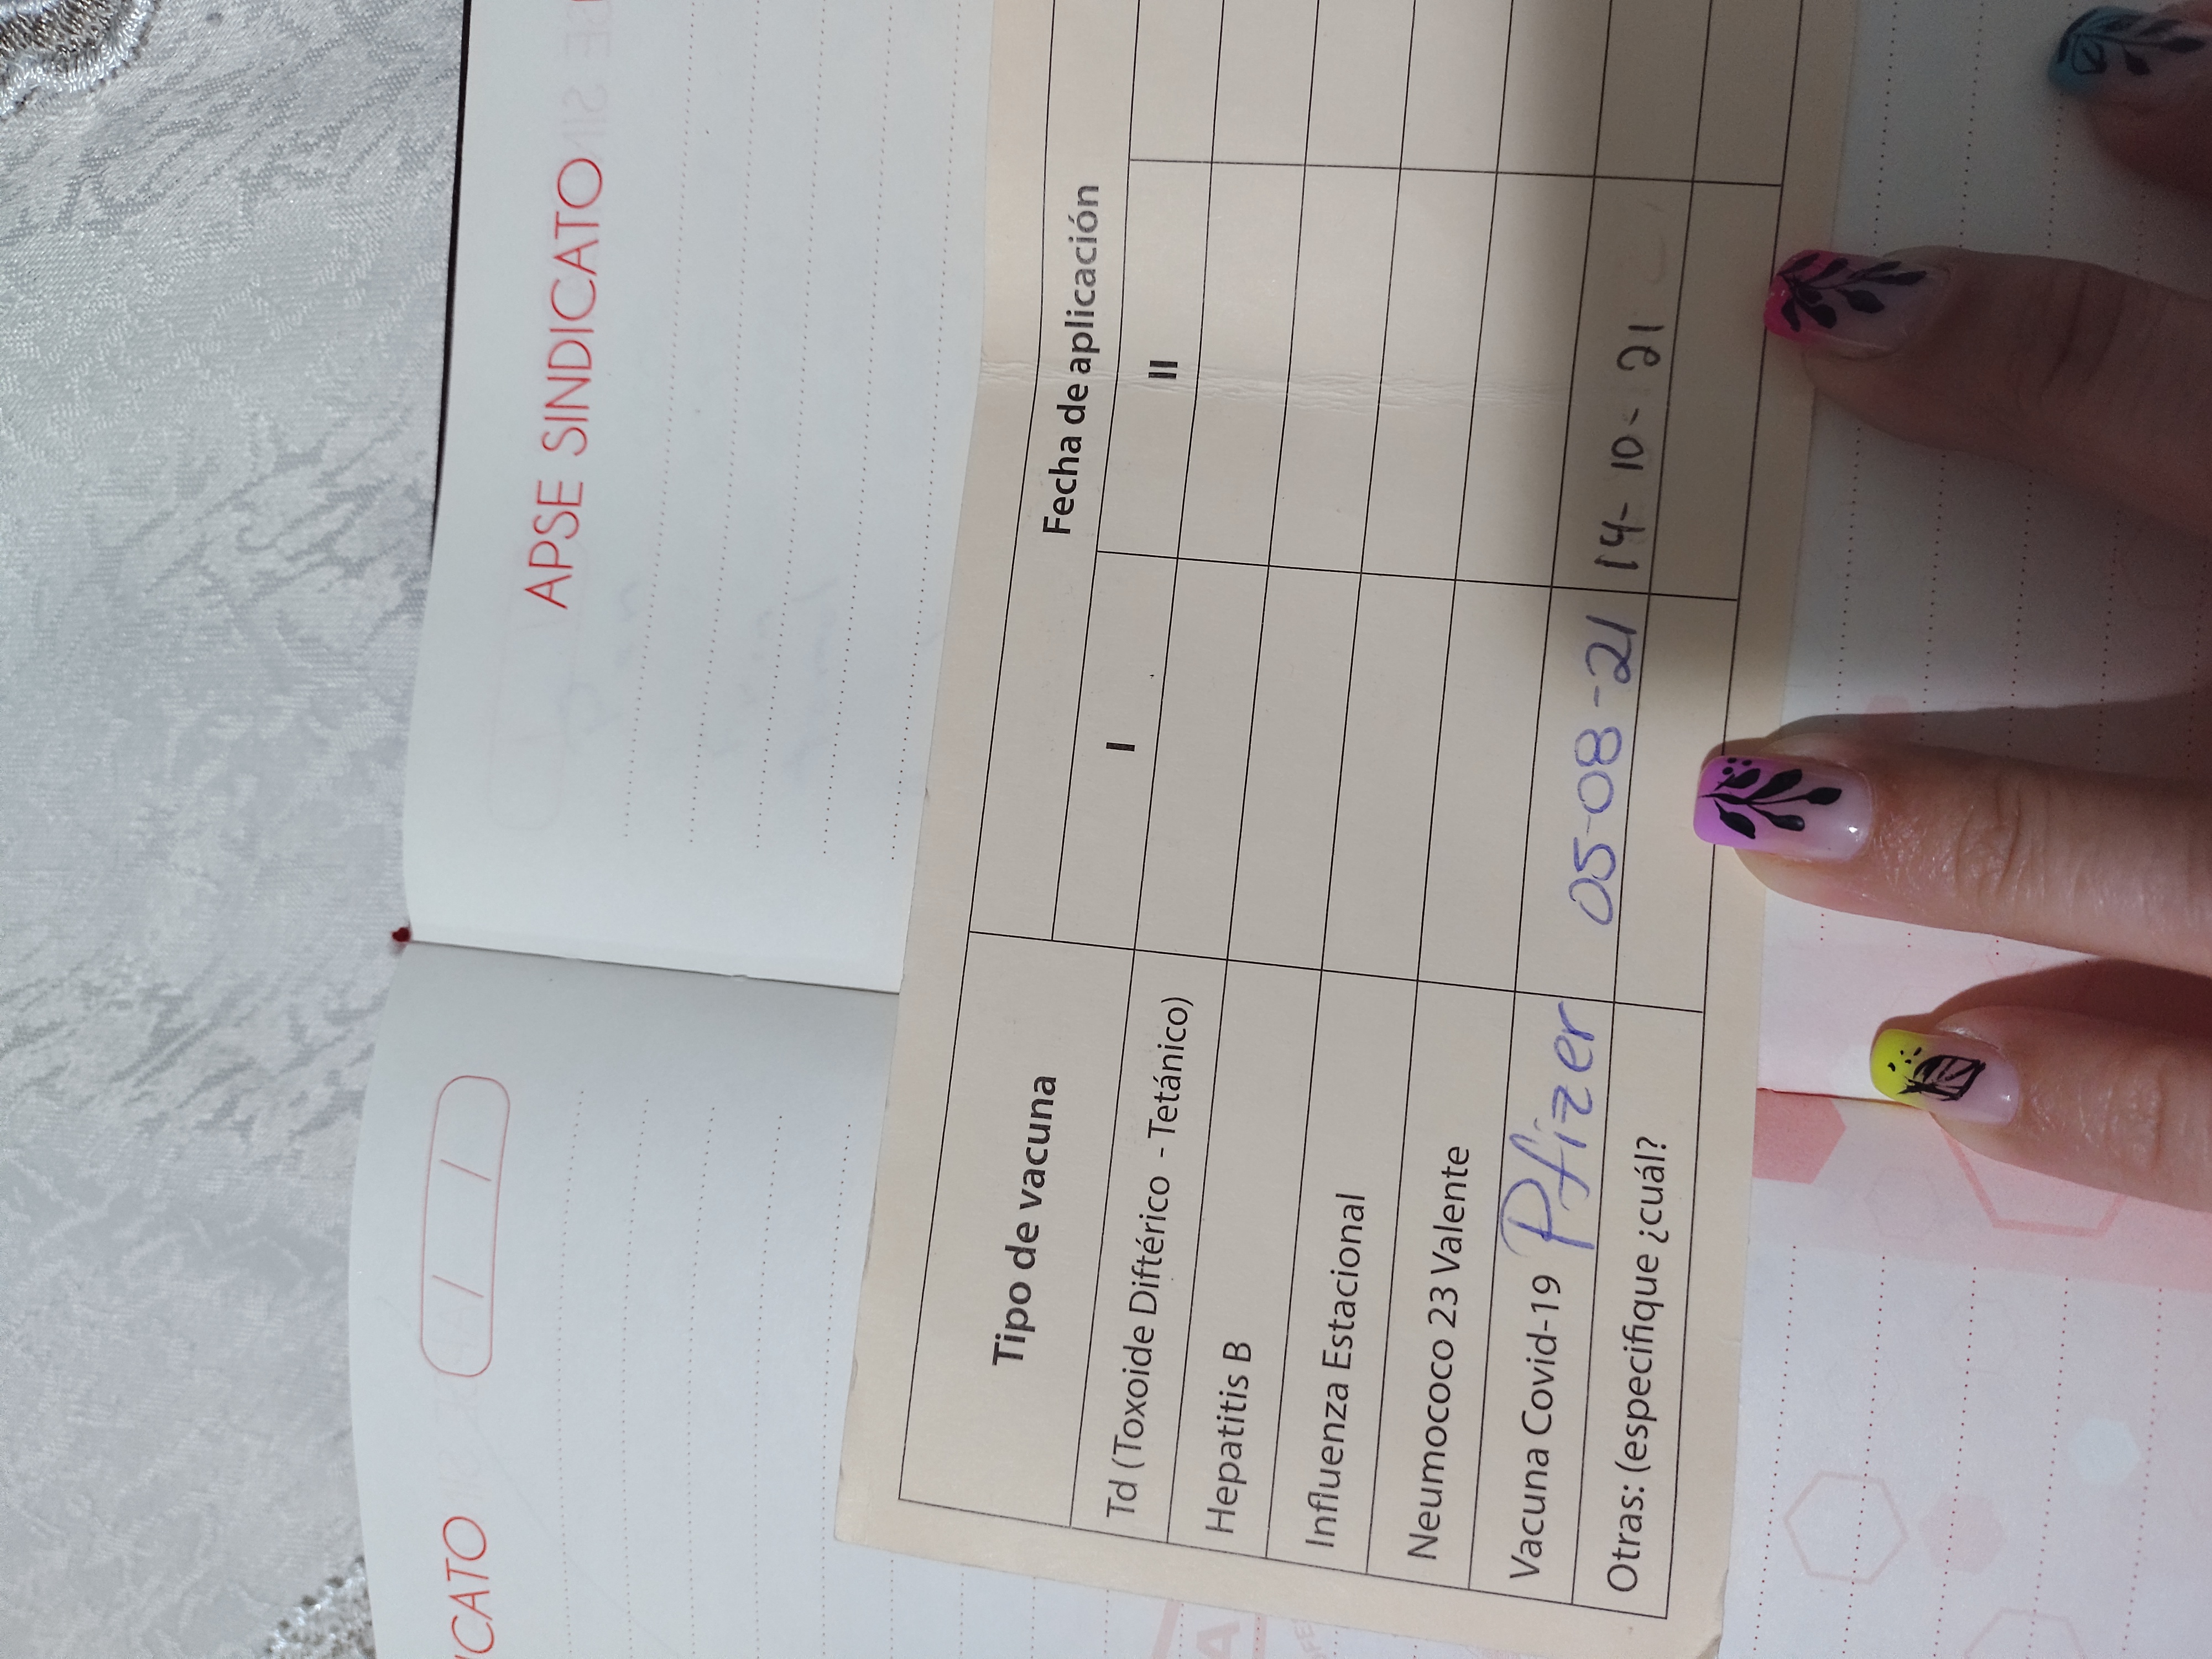 ICATO / /
APSE SINDICATO
Tipo de vacuna
Fecha de aplicación
I
II
Td (Toxoide Diftérico - Tetánico)
Hepatitis B
Influenza Estacional
Neumococo 23 Valente
Vacuna Covid-19 Pfizer 05-08-21 14-10-21
Otras: (especifique ¿cuál?